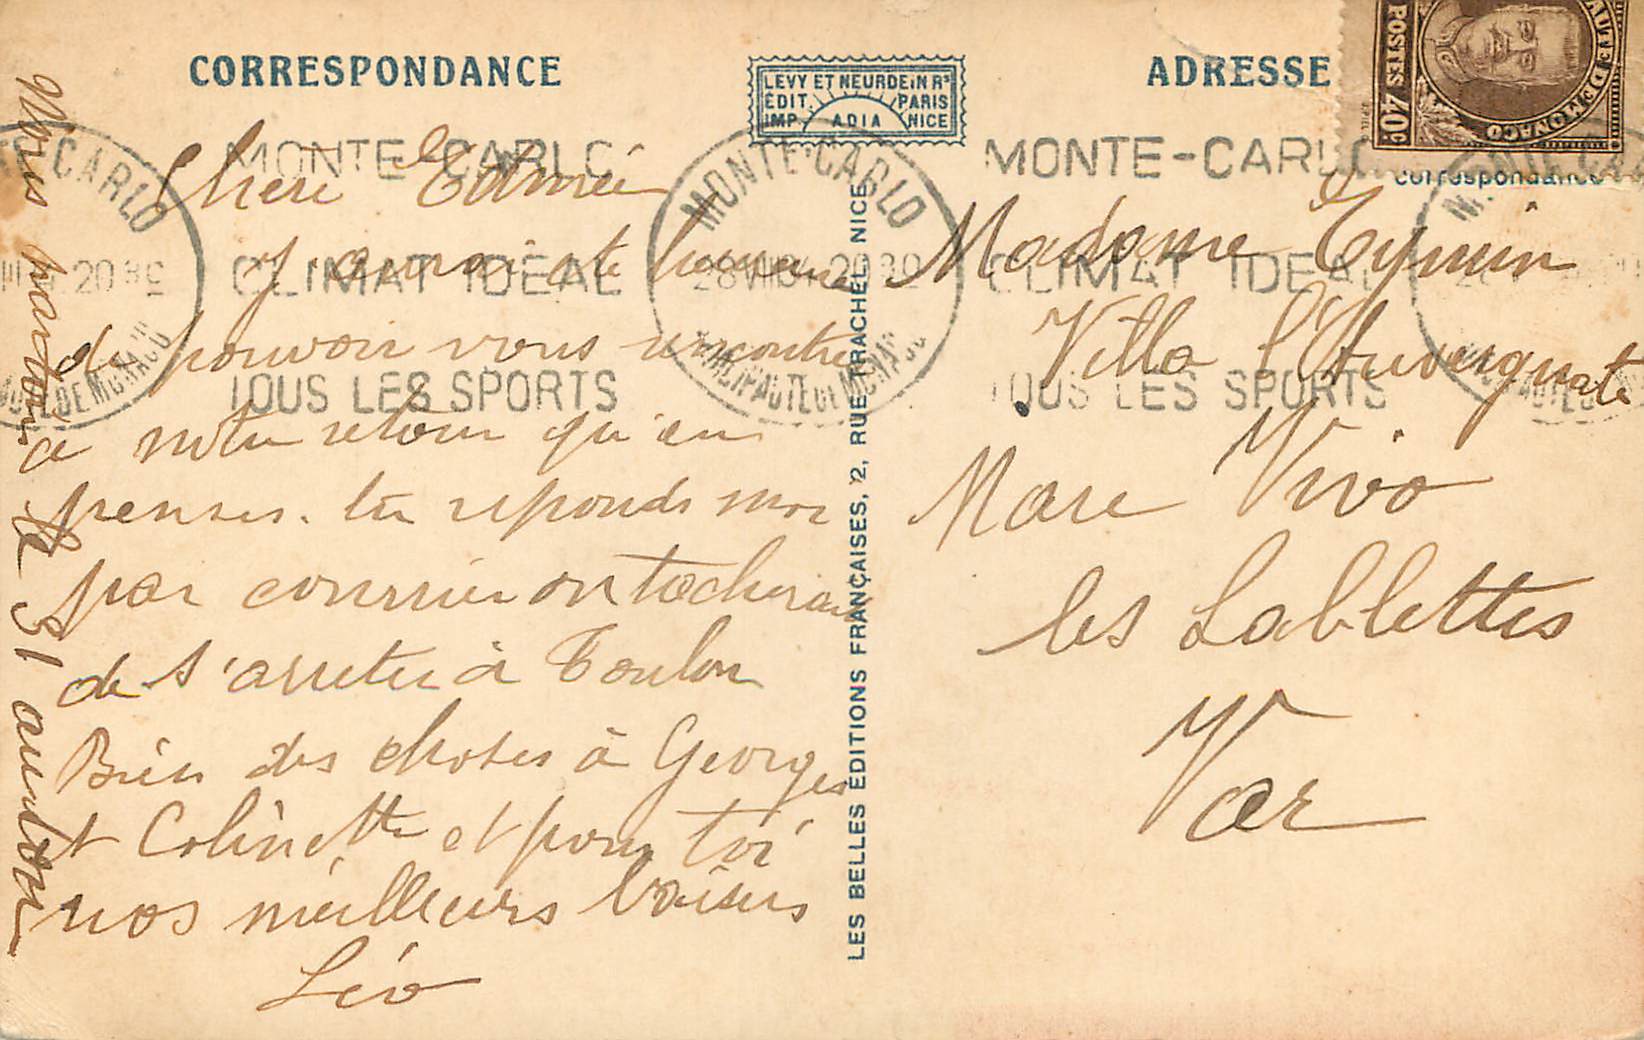 CORRESPONDANCE
LEVY ET NEURDEIN RS
EDIT. PARIS
IMP. ADIA NICE
ADRESSE
POSTES 40c
Correspondance
MONTE-CARLO
CLIMAT IDEAL
TOUS LES SPORTS
MONTE-CARLO
28 VIII 34 2030
PRINCIPAUTE DE MONACO
MONTE-CARLO
CLIMAT IDEAL
TOUS LES SPORTS
Chère Edmée
J'aurai été heureuse
de pouvoir vous rencontrer
a notre retour qu'en
penses. tu réponds moi
par courrier on tachera
de s'arreter à Toulon
Bien des choses à Georges
et Colinette et pour toi
nos meilleurs baisers
Léo
Nous partons le 31 au soir
Madame Eymin
Villa l'Auvergnate
Mare Vivo
les Sablettes
Var
LES BELLES ÉDITIONS FRANÇAISES, 2, RUE TRACHEL, NICE